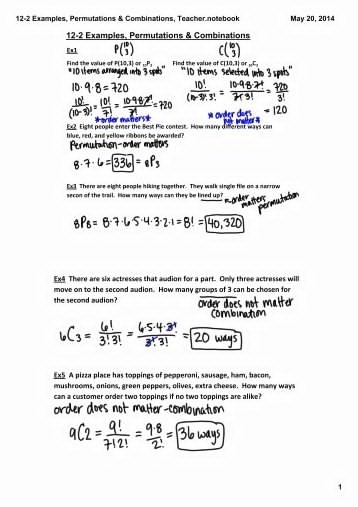 12-2 Examples, Permutations & Combinations, Teacher.notebook May 20, 2014
12-2 Examples, Permutations & Combinations
Ex1 P(10 3) C(10 3)
Find the value of P(10,3) or ₁₀P₃ Find the value of C(10,3) or ₁₀C₃
"10 items arranged into 3 spots" "10 items selected into 3 spots"
10·9·8=720
10!/(10-3)! = 10!/7! = 10·9·8·7!/7! = 720
10!/(10-3)!·3! = 10·9·8·7!/7!3! = 720/3! = 120
*order matters* *order does not matter*
Ex2 Eight people enter the Best Pie contest. How many different ways can
blue, red, and yellow ribbons be awarded?
Permutation-order matters
8·7·6=336=8P3
Ex3 There are eight people hiking together. They walk single file on a narrow
secon of the trail. How many ways can they be lined up? → order matters permutation
8P8=8·7·6·5·4·3·2·1=8!=40,320
Ex4 There are six actresses that audion for a part. Only three actresses will
move on to the second audion. How many groups of 3 can be chosen for
the second audion?
order does not matter
combination
6C3 = 6!/3!3! = 6·5·4·3!/3!·3! = 20 ways
Ex5 A pizza place has toppings of pepperoni, sausage, ham, bacon,
mushrooms, onions, green peppers, olives, extra cheese. How many ways
can a customer order two toppings if no two toppings are alike?
order does not matter-combination
9C2 = 9!/7!2! = 9·8/2! = 36 ways
1